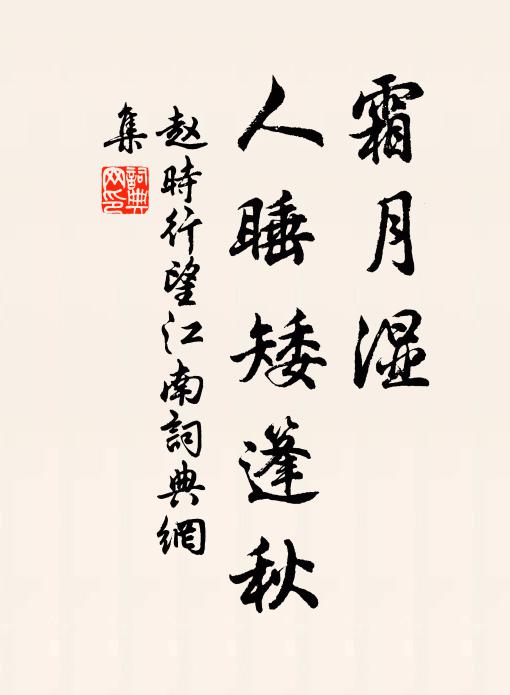 霜月湿
人睡矮篷秋
赵時行望江南詞典網
集
詞典
网印